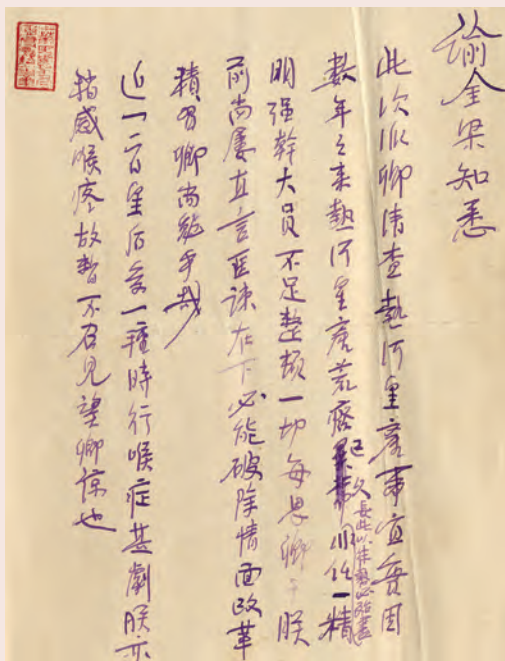 諭金梁知悉
此次派卿清查熱河皇產事宜實因
數年之來熱河皇產荒廢已久長此以往勢必殆盡非派一精
明强幹大員不足整頓一切每思卿于朕
前尚屢直言匡諫在下必能破除情面改革
積習卿尚勉乎哉
近一二日皇后受一種時行喉症甚劇朕亦
稍感喉疼故暫不召見望卿諒也